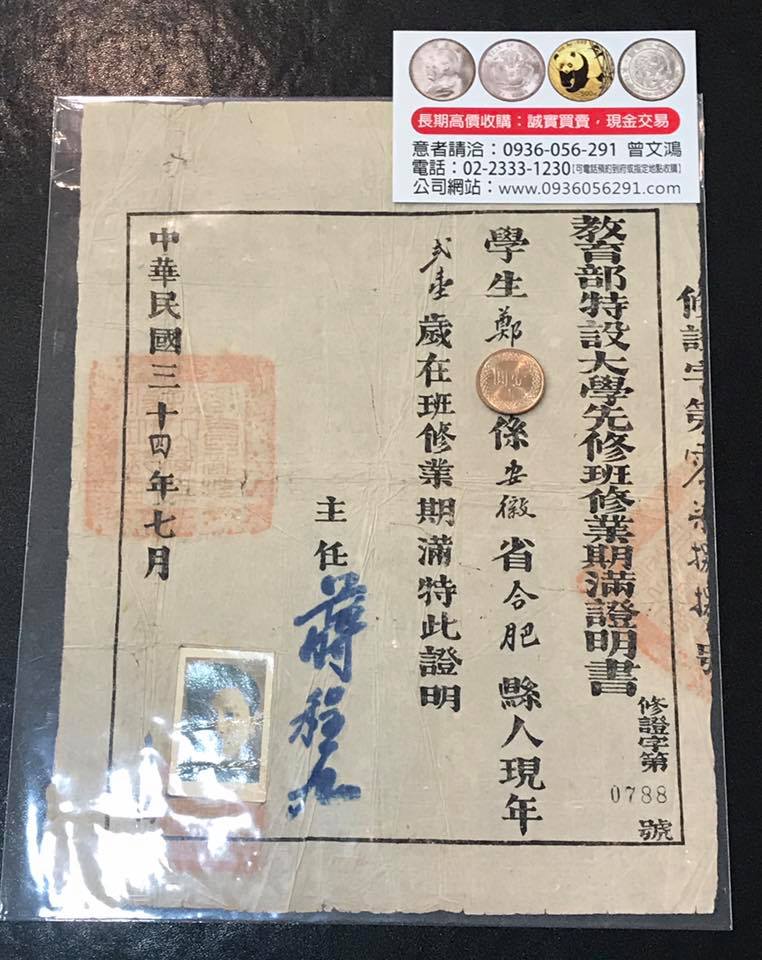 長期高價收購：誠實買賣，現金交易
意者請洽：0936-056-291 曾文鴻
電話：02-2333-1230【可電話預約到府或指定地點收購】
公司網站：www.0936056291.com
修證字第零柒捌捌號
教育部特設大學先修班修業期滿證明書
修證字第0788號
學生鄭 係安徽省合肥縣人現年
弍壹歲在班修業期滿特此證明
主任蔣
中華民國三十四年七月